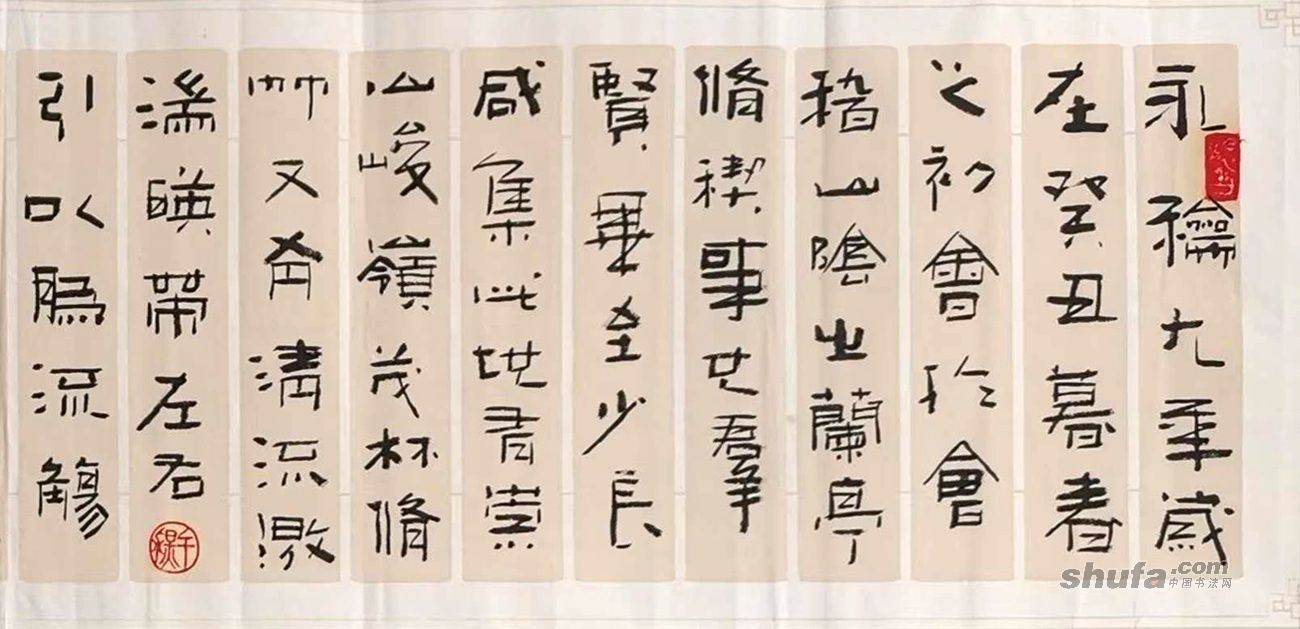 永龢九年歲
在癸丑暮春
之初會於會
稽山陰之蘭亭
脩禊事也羣
賢畢至少長
咸集此地有崇
山峻嶺茂林脩
竹又有清流激
湍暎帶左右
引以為流觴
shufa.com
中国书法网